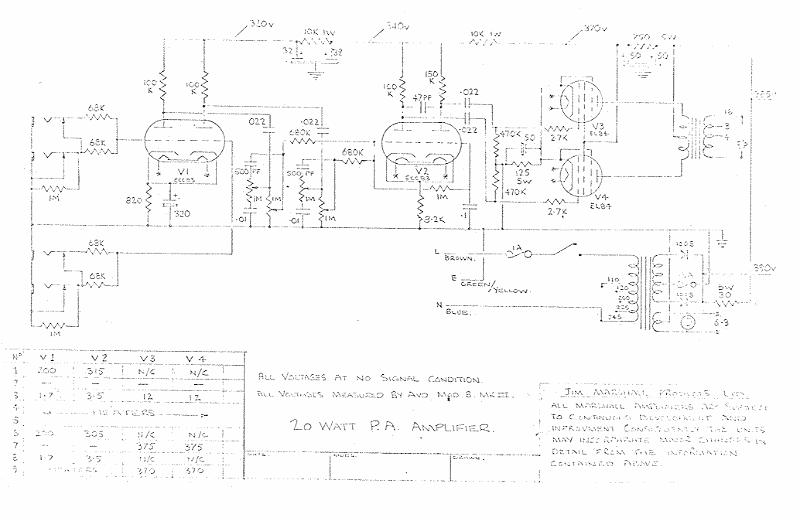 310V
10K 1W
340V
10K 1W
370V
250 5W
32
32
50
50
100
K
100
K
100
K
150
K
47PF
.022
.022
68K
68K
.022
.022
680K
680K
470K
50
2.7K
V3
EL84
16
8
4
V1
ECC83
500 PF
500 PF
V2
ECC83
125
5W
470K
V4
EL84
1M
820
320
1M
1M
1M
1M
.01
.01
8.2K
.1
2.7K
68K
68K
1M
L
BROWN.
1A
E
GREEN/YELLOW.
N
BLUE.
110
120
200
225
245
5W
30
350V
6·3
Nº V1 V2 V3 V4
1 200 315 N/C N/C
2 — — — —
3 1·7 3·5 12 12
4 — HEATERS —
5
6 200 305 N/C N/C
7 — — 375 375
8 1·7 3·5 N/C N/C
9 HEATERS 370 370
ALL VOLTAGES AT NO SIGNAL CONDITION.
ALL VOLTAGES MEASURED BY AVO MOD 8. MK III.
20 WATT P.A. AMPLIFIER.
JIM MARSHALL PRODUCTS LTD.
ALL MARSHALL AMPLIFIERS ARE SUBJECT
TO CONTINUOUS DEVELOPMENT AND
IMPROVMENT CONSEQUENTLY THE UNITS
MAY INCORPORATE MINOR CHANGES IN
DETAIL FROM THE INFORMATION
CONTAINED ABOVE.